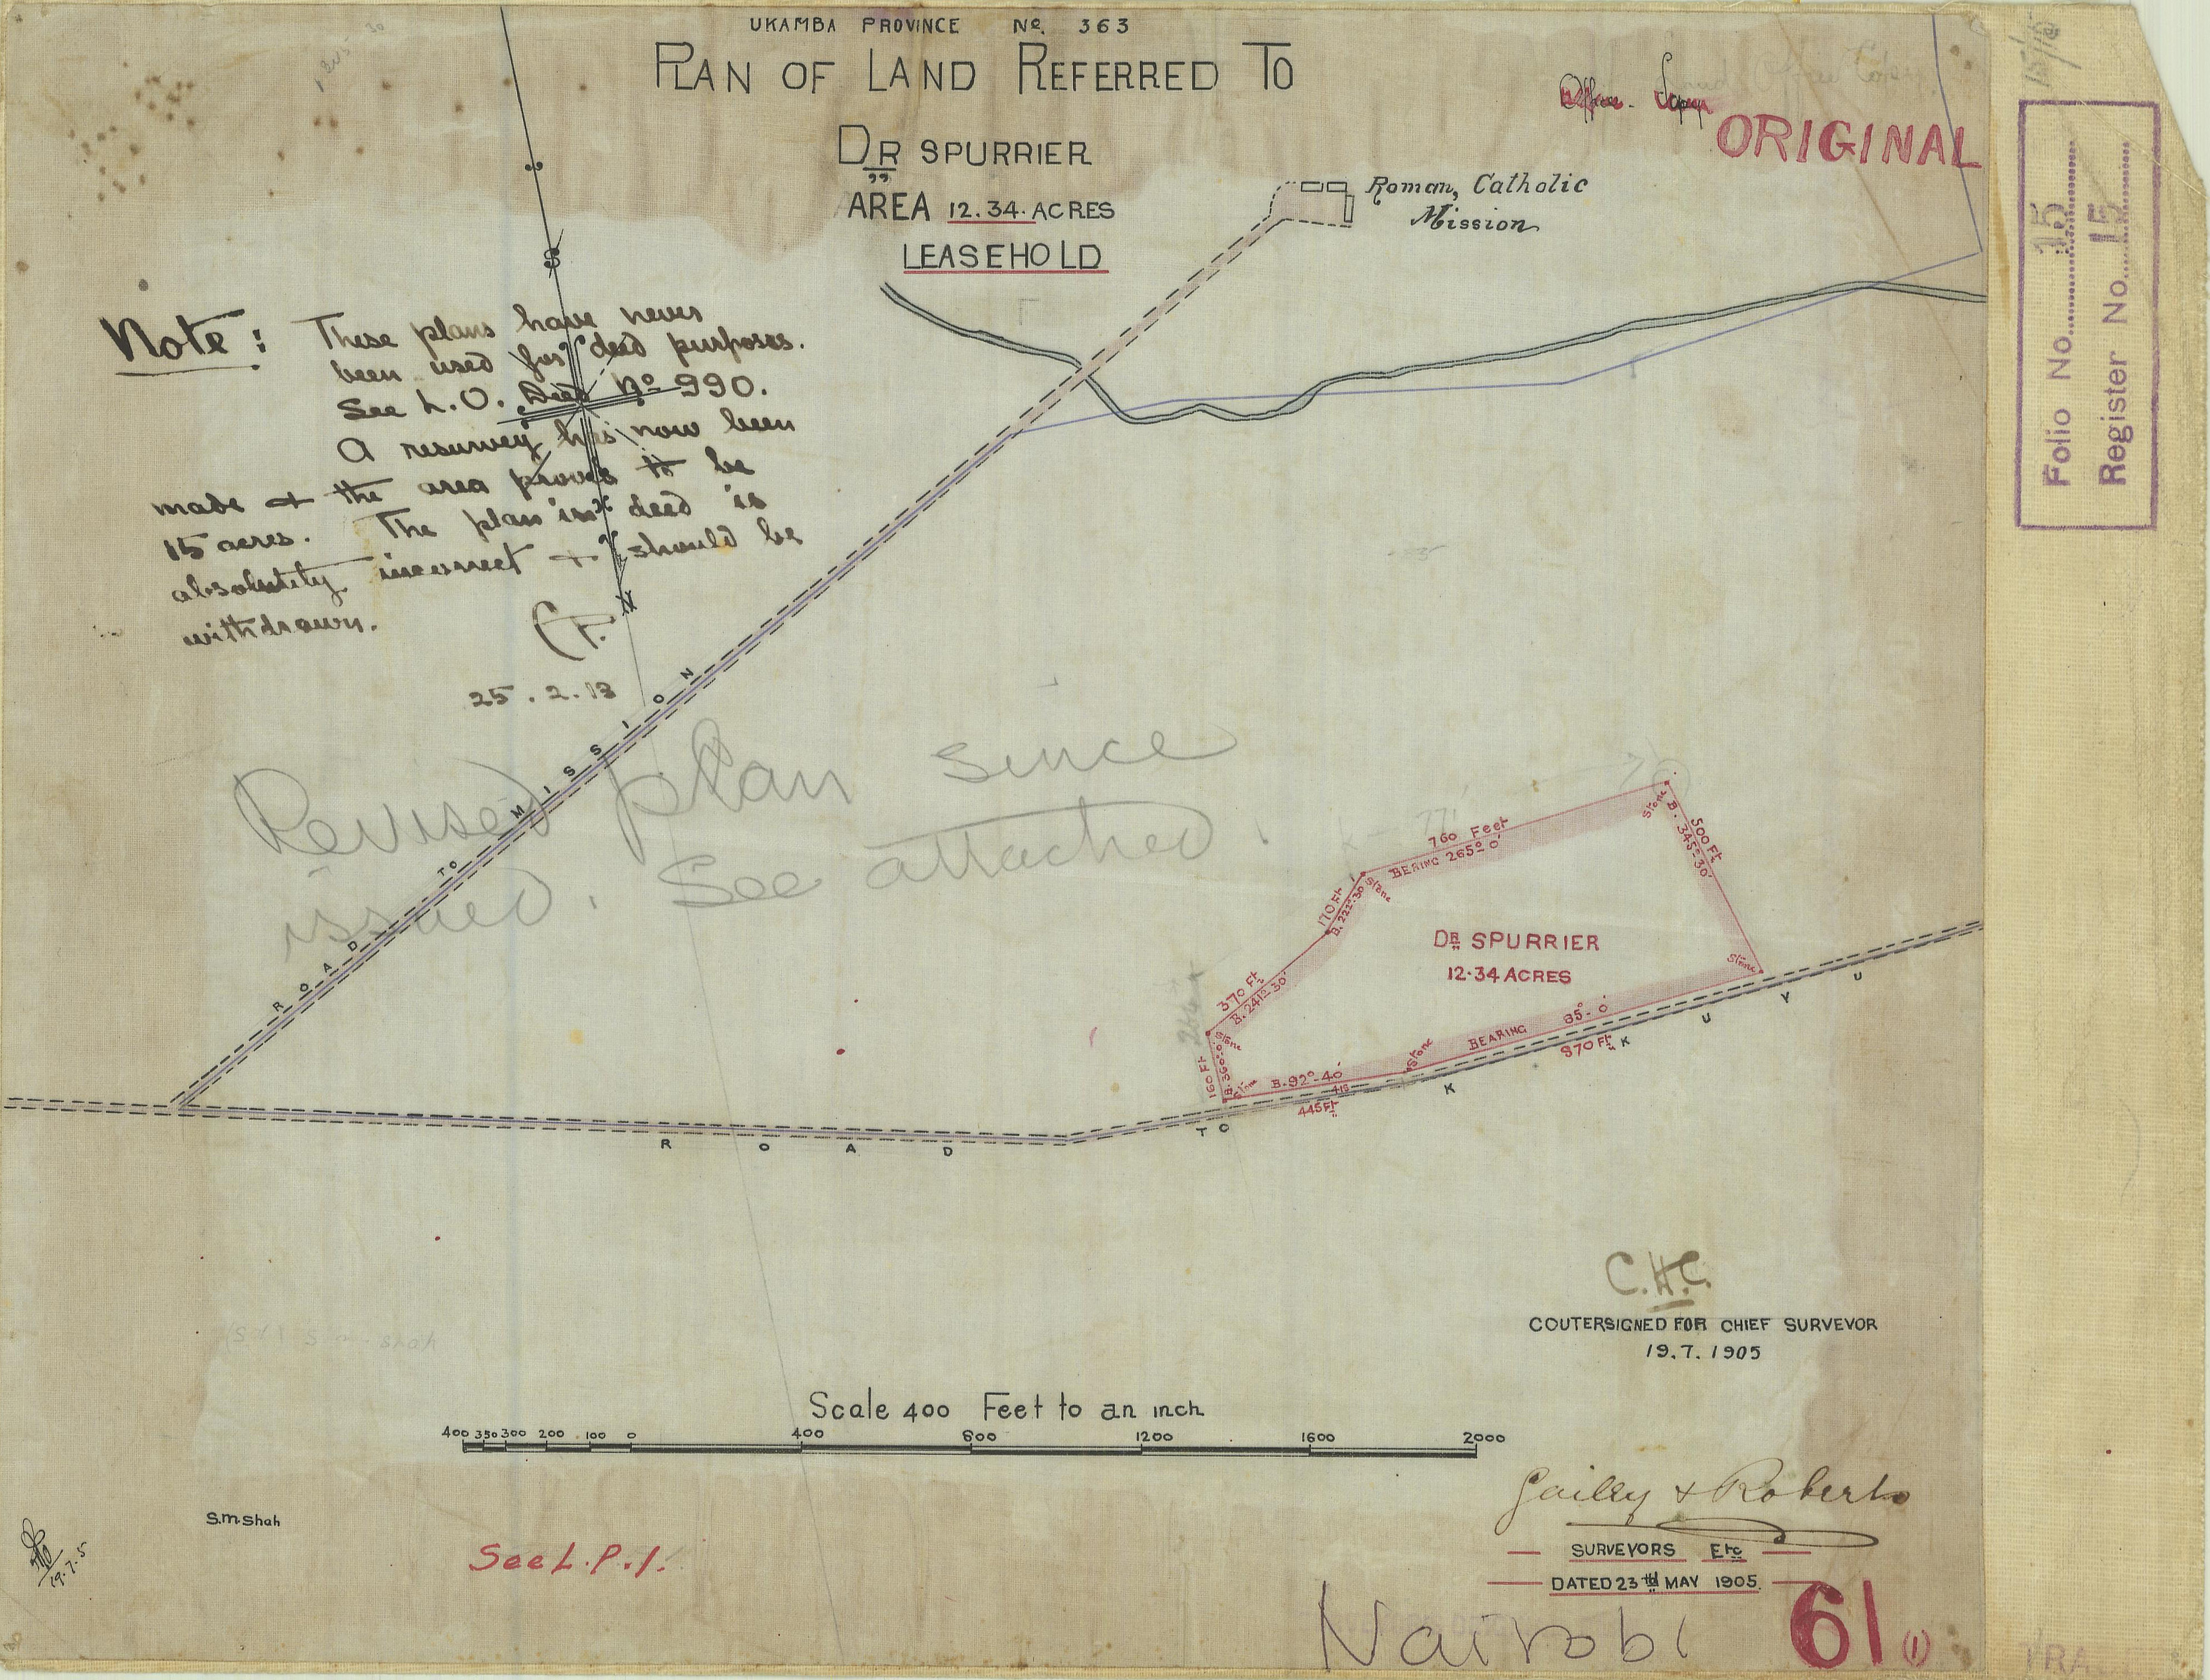 UKAMBA PROVINCE No. 363
PLAN OF LAND REFERRED TO
DR SPURRIER
AREA 12.34. ACRES
LEASEHOLD
ORIGINAL
Folio No. 15
Register No. 15
Roman, Catholic
Mission
S
Note: These plans have never
been used for deed purposes.
See L.O. Deed No 990.
A resurvey has now been
made + the area proves to be
15 acres. The plan in deed is
absolutely incorrect + should be
withdrawn.
N
25.2.13
Revised plan since
issued. See attached.
ROAD TO MISSION
760 Feet
BERING 265° 0'
Stone
500 Ft
B. 345° 30'
170 Ft
B. 221° 30'
Stone
370 Ft
B. 241° 30'
DR SPURRIER
12.34 ACRES
Stone
160 Ft
B. 360° 0'
Stone
Stone
B. 92° 40'
415
445 Ft
Stone
BEARING 85° 0'
970 Ft
ROAD TO KIKUYU
C.H.C.
COUTERSIGNED FOR CHIEF SURVEYOR
19.7.1905
Scale 400 Feet to an inch
400 350 300 200 100 0 400 800 1200 1600 2000
Gailey & Roberts
SURVEYORS Etc
DATED 23rd MAY 1905.
S.m.Shah
19.7.5
See L.P.1.
Nairobi
61 (1)